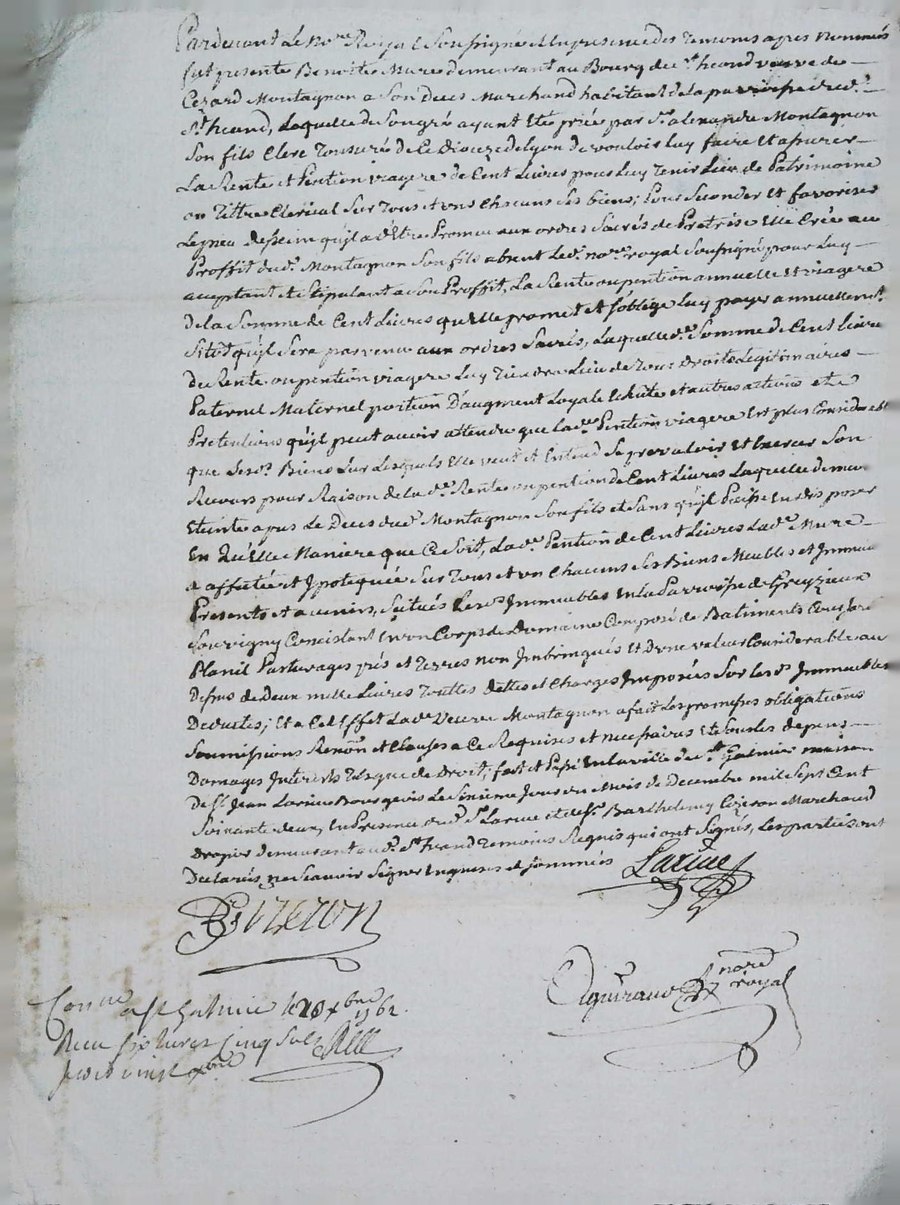 Pardevant Le nore Royal Soussigné et en presence des Temoins apres nommés
fut presente Benoite Mure demeurant au Bourg de st heand veuve de
Cezard Montagnon a Son deces Marchand habitant de la parroisse dud.
St. heand, Laquelle de Son gré ayant Eté priée par Sr. alexandre Montagnon
Son fils Clerc Tonsuré de Ce Dioceze de lyon de vouloir luy faire Et assurer
La Rente et Pention viagere de Cent Livres pour Luy Tenir Lieu de Patrimoine
ou Tittre Clerical Sur Tous et uns Chacuns Ses biens; Pour Seconder Et favoriser
Le pieu dessein qu'jl a d'Etre Promeu aux ordres Sacrés de Pretrise Elle Crée au
Proffit dud. Montagnon Son fils absent Led. nore. royal Soussigné pour Luy
acceptant et Stipulant a Son Proffit, La Rente ou pention annuelle et viagere
de la Somme de Cent Livres qu'Elle promet et s'oblige Luy payer annuellemt.
Sitot qu'jl Sera parvenu aux ordres Sacrés, Laquelle de. Somme de Cent Livres
de Rente ou pention viagere Luy Tiendra Lieu de Tous Droits Legitimaires
Paternel Maternel portion D'augment Loyale Echute et autres actions et
Pretentions qu'jl peut avoir attendu que lade. Pention viagere Est plus Considerable
que Sesd. Biens Sur Lesquels Elle veut et Entend Se prevaloir Et Exercer Son
Recours pour Raison de lade. Rente ou pention de Cent Livres Laquelle demeure
Eteinte apres Le Deces dud. Montagnon Son fils et Sans qu'jl Puisse En disposer
En Quelle Maniere que Ce Soit, Lade. Pention de Cent Livres Lade. Mure
a affectée et Jpotequée Sur Tous et un Chacuns Ses Biens Meubles et Immeubles
Presents et avenirs, Scitués Lesd. Immeubles En la Parroisse de Greyzieux
Souvigny Concistant En un Corps de Domaine Composé de Batiments Cour Jardin
Planil Pasturages prés et Terres non Jmbringués Et d'une valeur Considerable au
Dessus de deux mille Livres Touttes dettes et Charges Imposées Sur lesd. Immeubles
Deduites; Et a Cet Effet Lade. Veuve Montagnon a fait Les promesses obligations
Soumissions Renon. et Clauses a Ce Requises et necessaires Et Sous les depens
Domages Interets Telsque de Droit; fait et Passé En la ville de St. Galmier maison
De Sr. Jean Larive Bourgeois Le Sixieme Jour du Mois de Decembre mil Sept Cent
Soixante deux, En Presence dud. Sr. Larive et de Sr. Barthelemy Cizeron Marchand
Drapier demeurant aud. St. heand Temoins Requis qui ont Signés, Les parties ont
Declarés ne Scavoir Signer Enquises et Sommées
Larive
BCizeron
Aguiraud nore royal
Conlle a St Galmier le 20 xbre 1762.
Reçu six Livres Cinq Sols